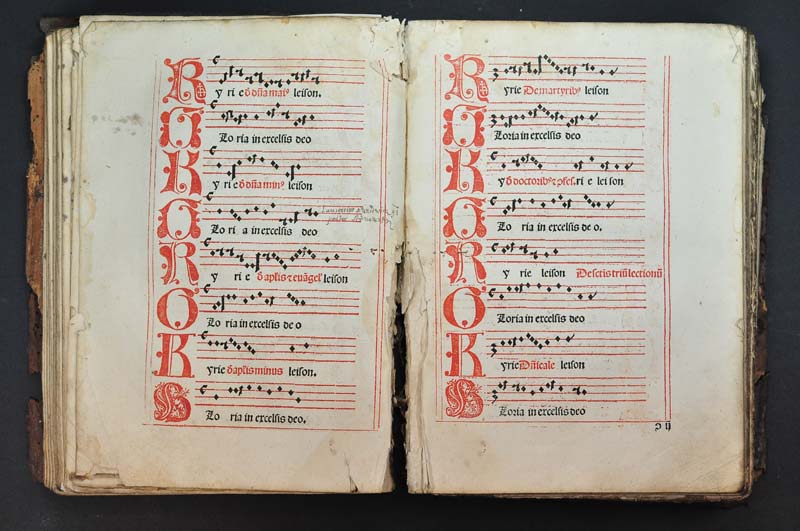 Kyrie ð dña mai⁹ leison.
Glo ria in excelsis deo
Kyrie ð dña min⁹ leison
Glo ri a in excelsis deo
Ky ri e ð aplis ⁊ evãgel' leison
Glo ria in excelsis de o
Kyrie ð aplis minus leison.
Glo ria in excelsis deo.
Kyrie De martyrib⁹ leison
Gloria in excelsis deo
Ky ð doctorib⁹ ⁊ ɔfes. ri e lei son
Glo ria in excelsis de o.
Ky rie leison De scris triũ lectionũ
Gloria in excelsis deo
Kyrie Dñicale leison
Gloria in excelsis deo